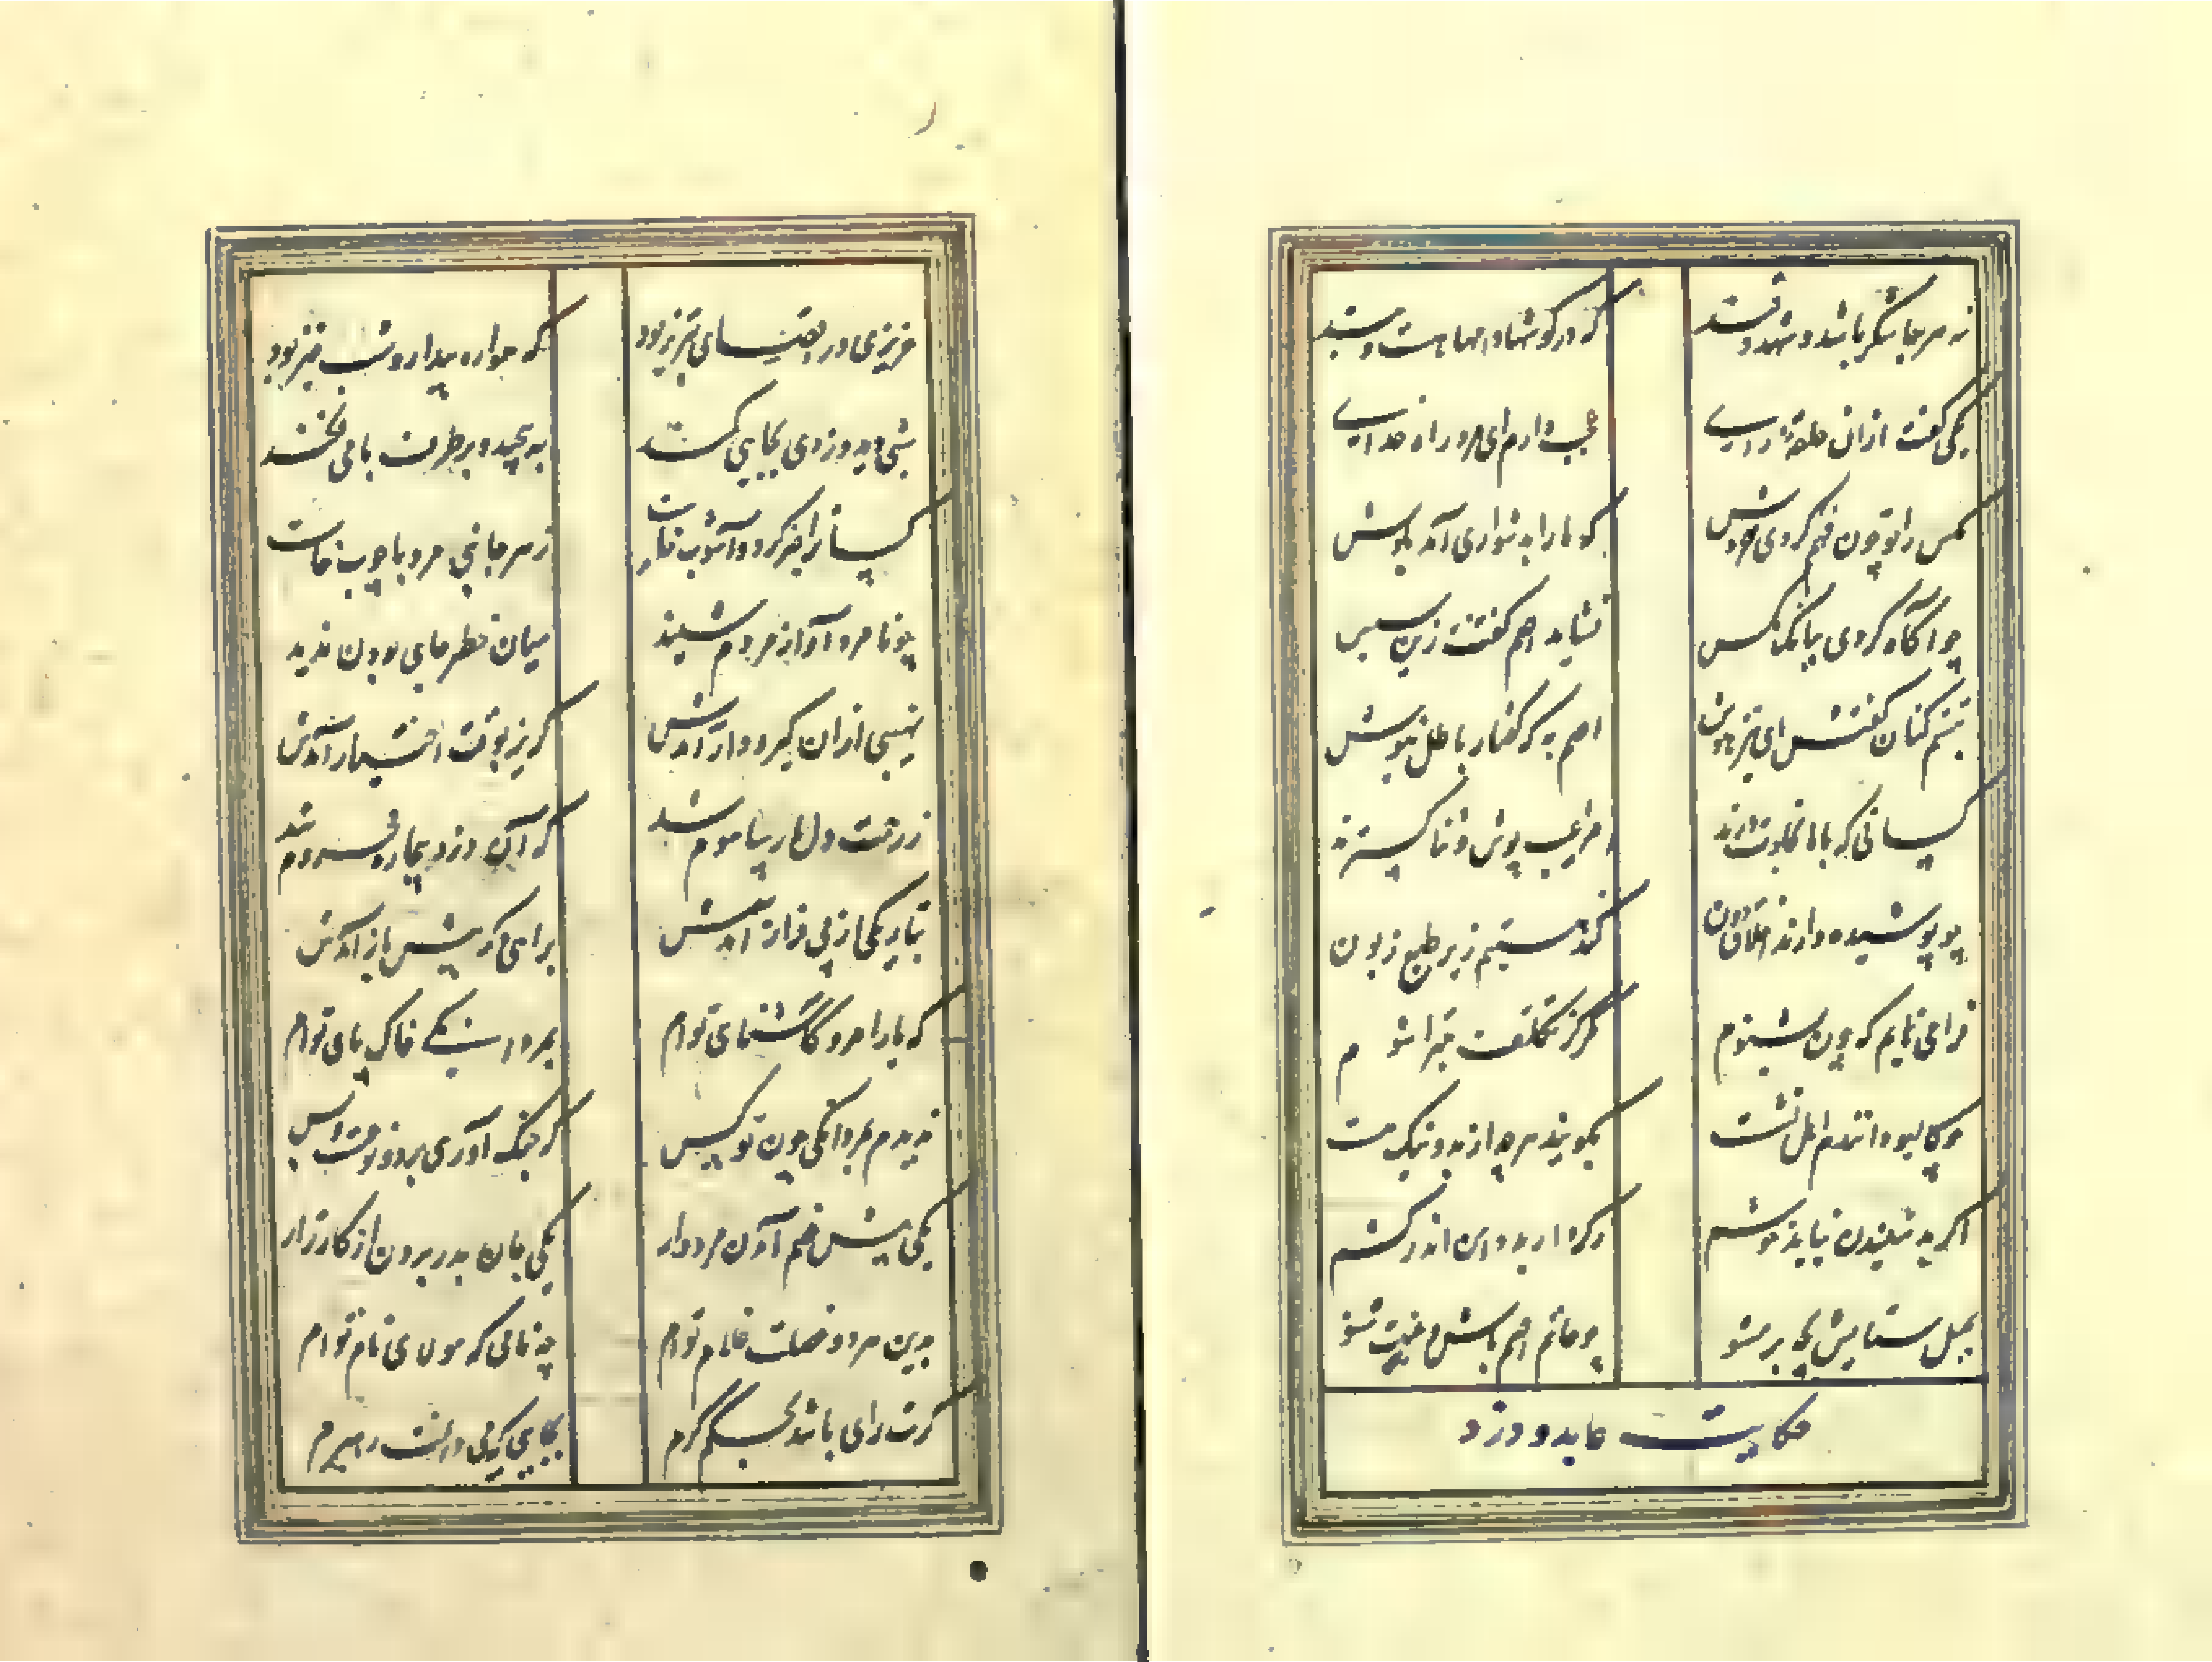 نه هرجا شکر باشد و شهد و قند
که در گوشها دامها هست و بند
یکی گفت ازان حلقه اهل رای
عجب دارم ای مرد راه خدای
مکس را تو چون فهم کردی خروش
که ما را بدشواری آمد بکوش
تو آگاه کردی ببانک مکس
نشاید اصم گفتنت زین سپس
تبسم کنان گفتش ای تیز هوش
اصم به که گفتار باطل نیوش
کسانی که با ما بخلوت درند
مرا عیب پوش و ثنا کسترند
چو پوشیده دارند اخلاق دون
کند هستیم زیر طبع زبون
فرا می نمایم که می نشنوم
مکر کز تکلف مبرا شوم
چو کالیوه دانندم اهل نشست
بکویند هرچه از بد و نیک هست
اکر بد شنیدن نیاید خوشم
ز کردار بد دامن اندر کشم
بحبل ستایش بچه بر مشو
چو حاتم اصم باش و غیبت شنو
حکایت عابد و دزد
عزیزی در اقصای تبریز بود
که همواره بیدار و شب خیز بود
شبی دید دزدی بجایی کمند
به پیچید و بر طرف بامی فکند
کسانرا خبر کرد و آشوب خاست
ز هر جانبی مرد با چوب خاست
چو نامرد آواز مردم شنید
میان خطر جای بودن ندید
نهیبی ازان کیر و دار آمدش
کریز بوقت اختیار آمدش
ز رحمت دل پارسا موم شد
که آن دزد بیچاره محروم شد
بتاریکی از پی فراز آمدش
براهی دکر پیش باز آمدش
که یارا مرو کاشنای توام
بمردانکی خاک پای توام
ندیدم بمردانکی چون تو کس
که جنک آوری بر دو نوعست و بس
یکی پیش خصم آمدن مردوار
یکی جان بدر بردن از کارزار
بدین هر دو خصلت غلام توام
چه نامی که مولای نام توام
کرت رای باشد بحکم کرم
بجایی که می دانمت ره برم